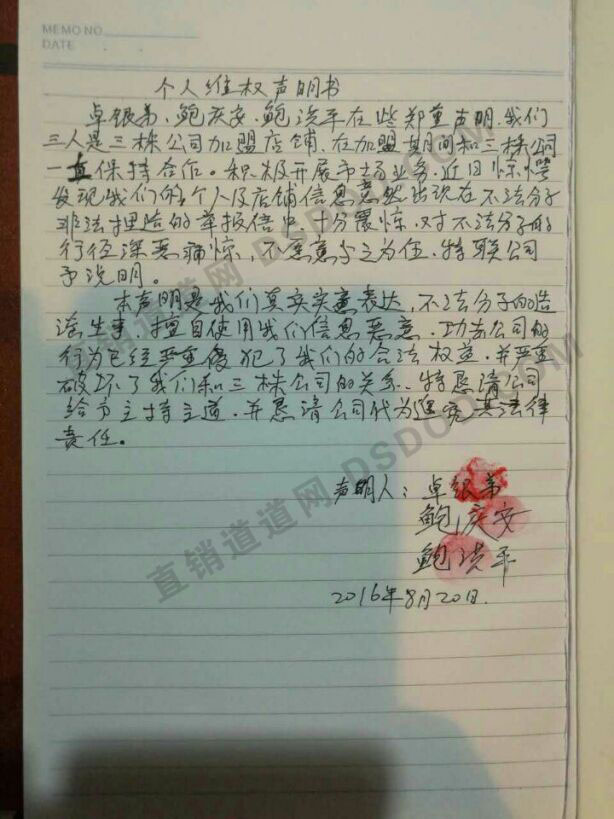 MEMO NO.
DATE
个人维权声明书
卓银弟、鲍庆安、鲍洪平在些郑重声明,我们
三人是三株公司加盟店铺,在加盟其间和三株公司
一直保持合作。积极开展市场业务,近日惊愕
发现我们的个人及店铺信息竟然出现在不法分子
非法捏造的举报信中,十分震惊,对不法分子的
行径深恶痛惊,不愿意与之为伍,特联公司
予说明。
本声明是我们真实实意表达,不法分子的
造生事,擅自使用我们信息恶意,功击公司的
行为已经严重侵犯了我们的合法权益,并严重
破坏了我们和三株公司的关系,特恳请公司
给予主持主道,并恳请公司代为追究其法律
责任。
声明人:卓银弟
鲍庆安
鲍洪平
2016年8月20日.
直销道道网 DSDOD.COM
直销道道网 DSDOD.COM